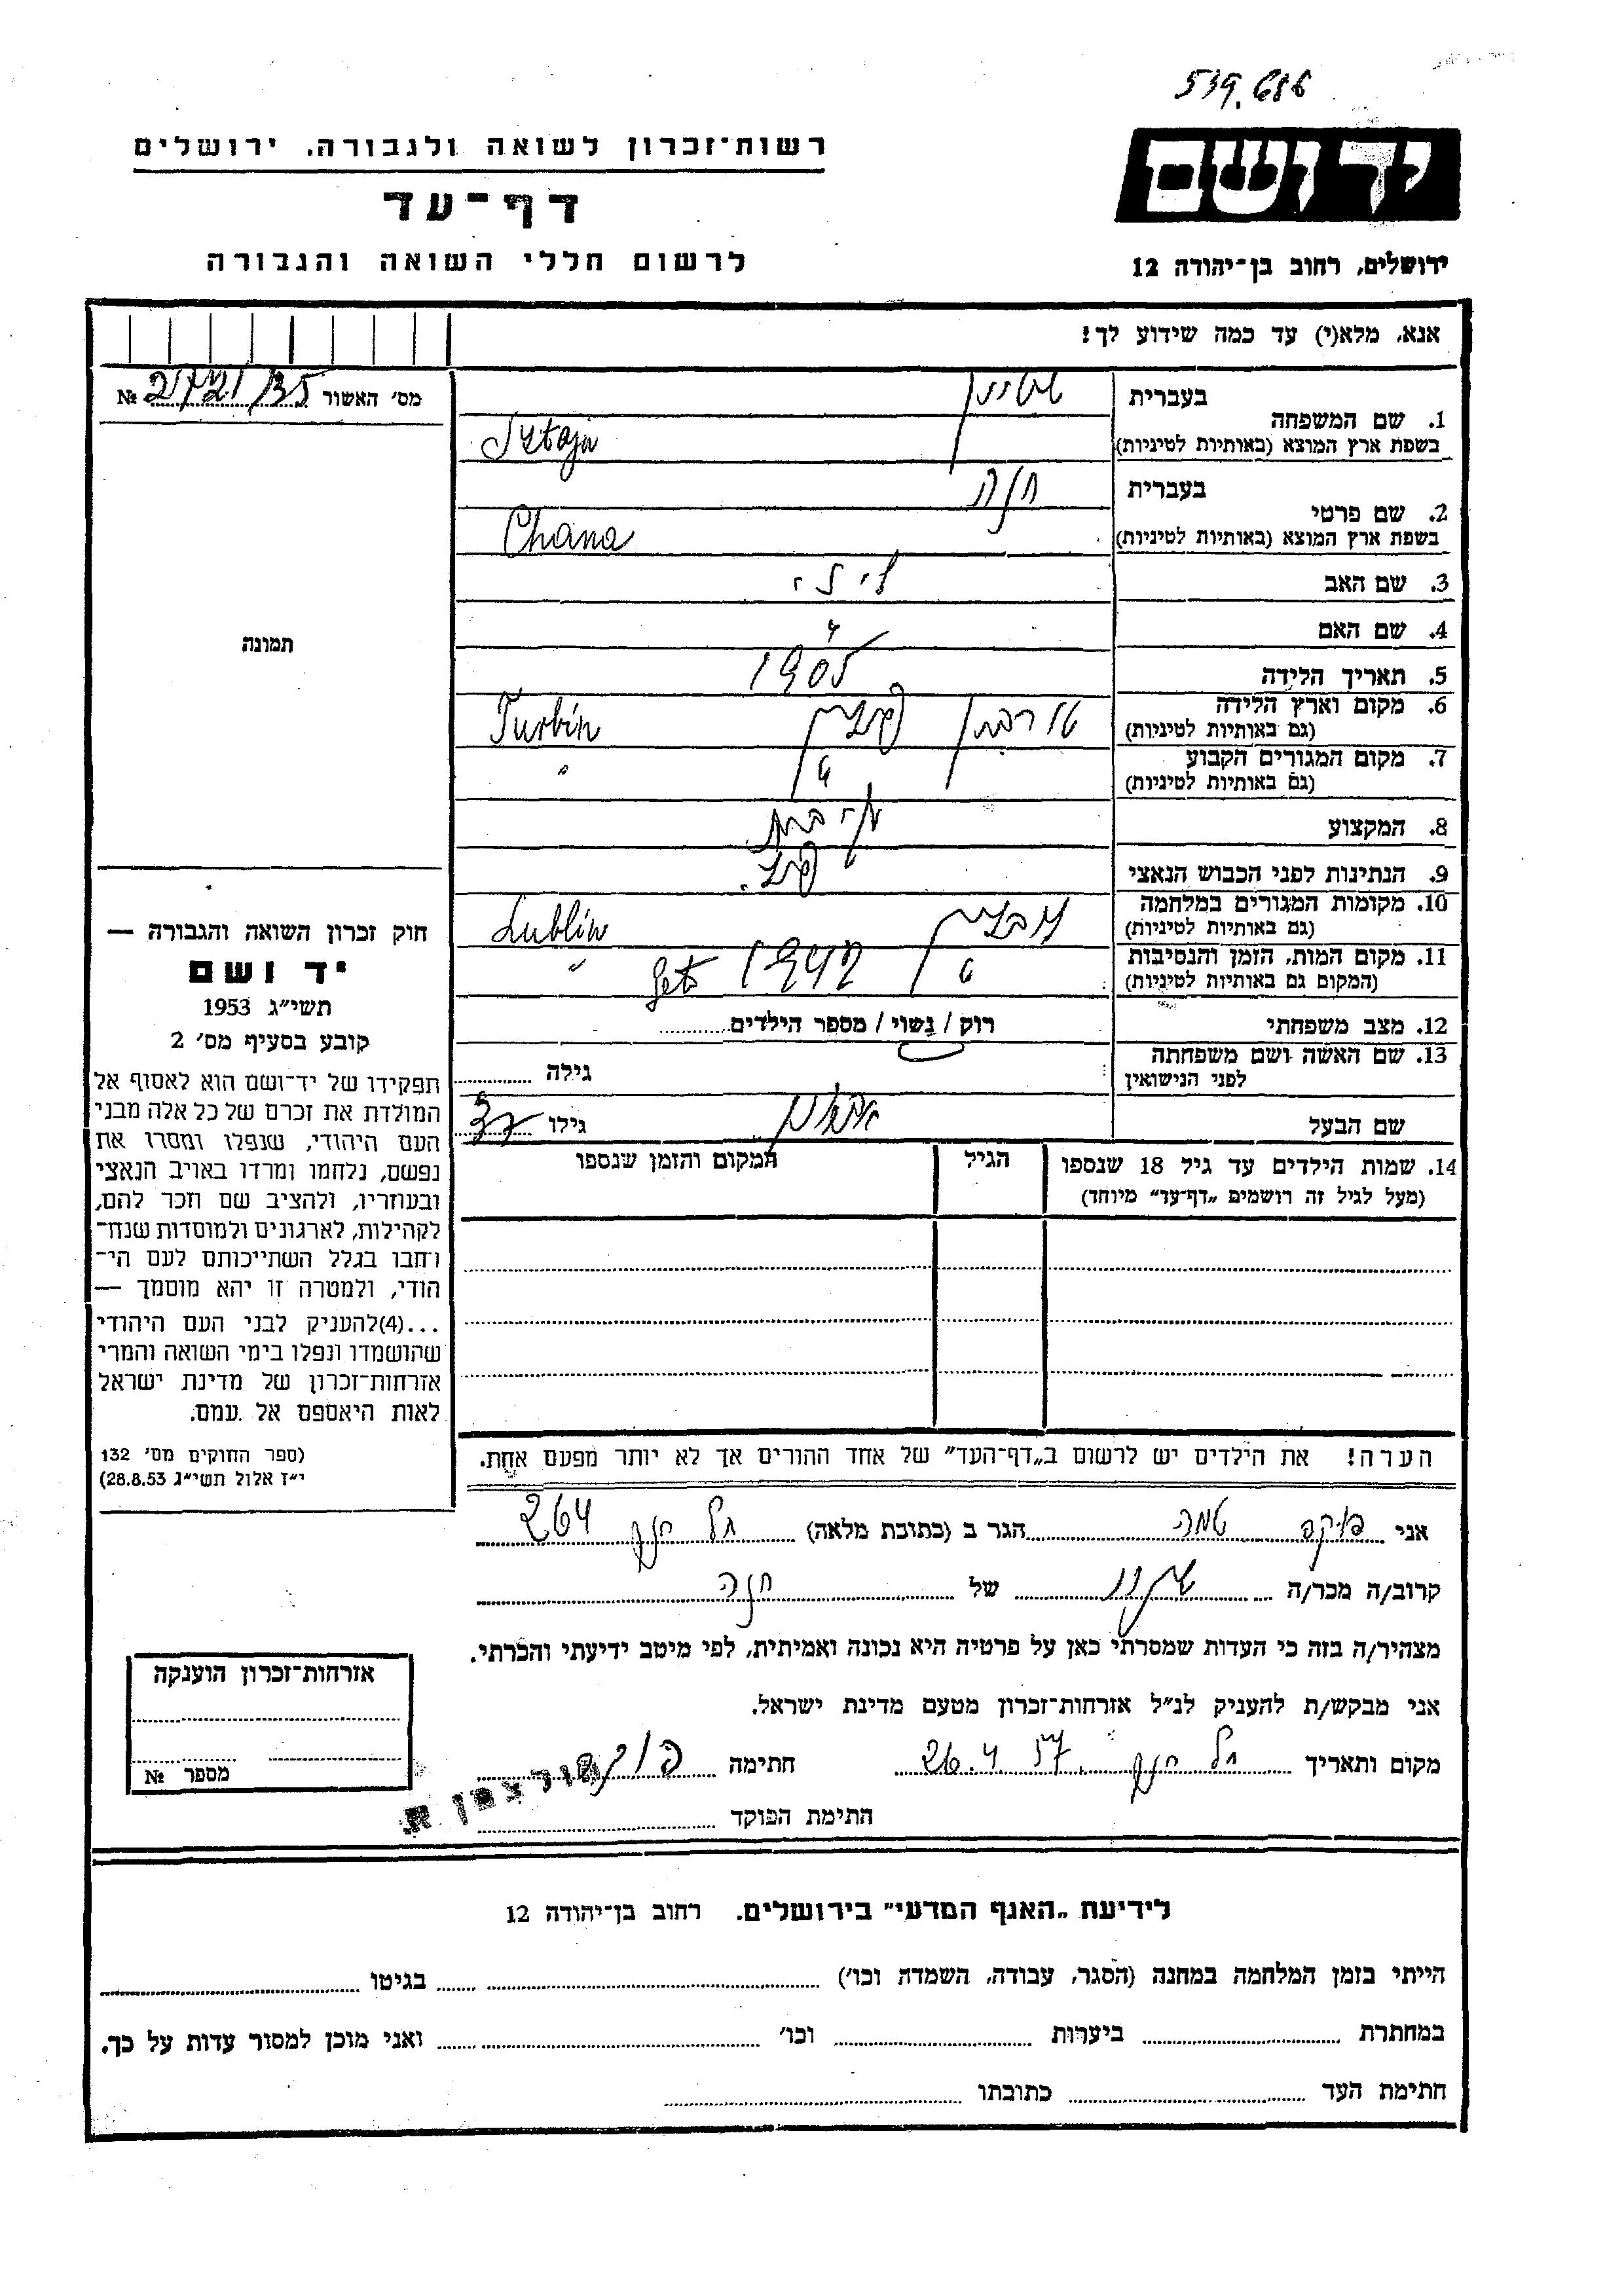 539.686
יד ושם
ירושלים, רחוב בן־יהודה 12
רשות־זכרון לשואה ולגבורה. ירושלים
דף־עד
לרשום חללי השואה והגבורה
אנא, מלא(י) עד כמה שידוע לך!
מס׳ האשור № 2721/35
תמונה
1. שם המשפחה
בעברית שטיין
בשפת ארץ המוצא (באותיות לטיניות) Sztajn
2. שם פרטי
בעברית חנה
בשפת ארץ המוצא (באותיות לטיניות) Chana
3. שם האב
4. שם האם
5. תאריך הלידה 1905
6. מקום וארץ הלידה
(גם באותיות לטיניות) טורבין פולין Turbin
7. מקום המגורים הקבוע
(גם באותיות לטיניות) " "
8. המקצוע
9. הנתינות לפני הכבוש הנאצי פולנ.
10. מקומות המגורים במלחמה
(גם באותיות לטיניות) לובלין Lublin
11. מקום המות, הזמן והנסיבות
(המקום גם באותיות לטיניות) " 1942 "
12. מצב משפחתי רוק / נשוי / מספר הילדים
13. שם האשה ושם משפחתה
לפני הנישואין גילה
שם הבעל גילו 37
14. שמות הילדים עד גיל 18 שנספו
(מעל לגיל זה רושמים „דף־עד״ מיוחד)
הגיל
המקום והזמן שנספו
חוק זכרון השואה והגבורה —
יד ושם
תשי״ג 1953
קובע בסעיף מס׳ 2
תפקידו של יד־ושם הוא לאסוף אל
המולדת את זכרם של כל אלה מבני
העם היהודי, שנפלו ומסרו את
נפשם, נלחמו ומרדו באויב הנאצי
ובעוזריו, ולהציב שם וזכר להם,
לקהילות, לארגונים ולמוסדות שנח־
רבו בגלל השתייכותם לעם הי־
הודי, ולמטרה זו יהא מוסמך —
...(4)להעניק לבני העם היהודי
שהושמדו ונפלו בימי השואה והמרי
אזרחות־זכרון של מדינת ישראל
לאות היאספם אל עמם.
(ספר החוקים מס׳ 132
י״ז אלול תשי״ג 28.8.53)
הערה! את הילדים יש לרשום ב„דף־העד״ של אחד ההורים אך לא יותר מפעם אחת.
אני הגר ב (כתובת מלאה) 264
קרוב/ה מכר/ה של חנה
מצהיר/ה בזה כי העדות שמסרתי כאן על פרטיה היא נכונה ואמיתית, לפי מיטב ידיעתי והכרתי.
אני מבקש/ת להעניק לנ״ל אזרחות־זכרון מטעם מדינת ישראל.
מקום ותאריך 26.4.57 חתימה
חתימת הפוקד
אזרחות־זכרון הוענקה
מספר №
לידיעת „האגף המדעי״ בירושלים. רחוב בן־יהודה 12
הייתי בזמן המלחמה במחנה (הסגר, עבודה, השמדה וכו׳) בגיטו
במחתרת ביערות וכו׳ ואני מוכן למסור עדות על כך.
חתימת העד כתובתו